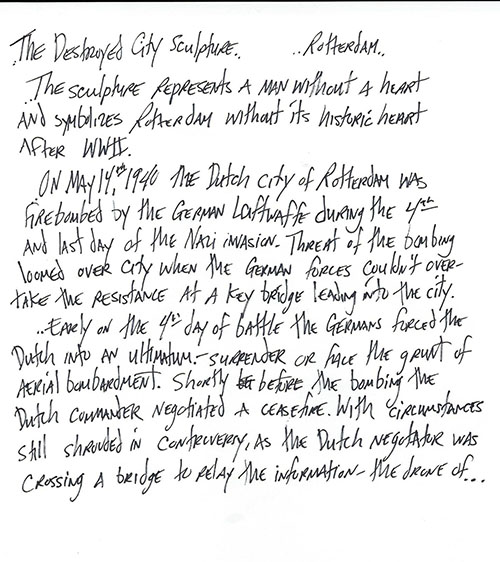 The Destroyed City Sculpture.. ..Rotterdam..
..The sculpture represents a man without a heart
and symbolizes Rotterdam without its historic heart
after WWII.
On May 14,th 1940 the Dutch city of Rotterdam was
firebombed by the German Luftwaffe during the 4th
and last day of the Nazi invasion- Threat of the bombing
loomed over city when the German forces couldn't over-
take the resistance at a key bridge leading into the city.
..Early on the 4th day of battle the Germans forced the
Dutch into an ultimatum.- surrender or face the grunt of
aerial bombardment. Shortly before the bombing the
Dutch commander negotiated a ceasefire. With circumstances
still shrouded in controversy, as the Dutch negotiator was
crossing a bridge to relay the information- the drone of...